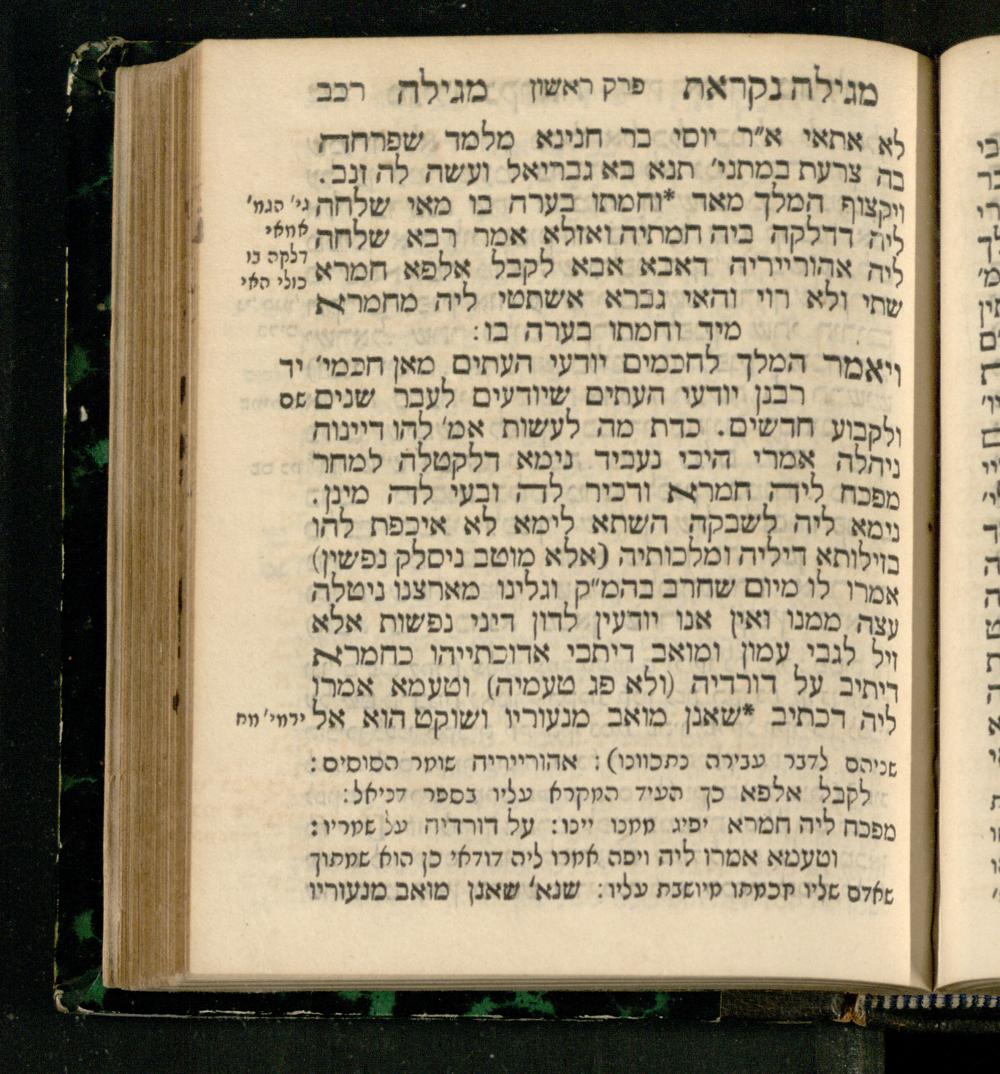 מגילה נקראת פרק ראשון מגילה רכב
לא אתאי א״ר יוסי בר חנינא מלמד שפרחה
בה צרעת במתני׳ תנא בא גבריאל ועשה לה זנב.
ויקצוף המלך מאד *וחמתו בערה בו מאי שלחה
ליה דדלקה ביה חמתיה ואזלא אמר רבא שלחה
ליה אהורייריה דאבא אבא לקבל אלפא חמרא
שתי ולא רוי והאי גברא אשתטי ליה מחמרא
מיד וחמתו בערה בו:
ויאמר המלך לחכמים יודעי העתים מאן חכמי׳
רבנן יודעי העתים שיודעים לעבר שנים
ולקבוע חדשים. כדת מה לעשות אמ׳ להו דיינוה
ניהלה אמרי היכי נעביד נימא דלקטלה למחר
מפכח ליה חמרא ודכיר לה ובעי לה מינן.
נימא ליה לשבקה השתא לימא לא איכפת להו
בזילותא דיליה ומלכותיה (אלא מוטב ניסלק נפשין)
אמרו לו מיום שחרב בהמ״ק וגלינו מארצנו ניטלה
עצה ממנו ואין אנו יודעין לדון דיני נפשות אלא
זיל לגבי עמון ומואב דיתבי אדוכתייהו כחמרא
דיתיב על דורדיה (ולא פג טעמיה) וטעמא אמרו
ליה דכתיב *שאנן מואב מנעוריו ושוקט הוא אל
גי׳ הגמ׳
אמאי
דלקה בו
כולי האי
יד
שם
ירמי׳ מח
שניהם לדבר עבירה נתכוונו): אהורייריה שומר הסוסים:
לקבל אלפא כך העיד המקרא עליו בספר דניאל:
מפכח ליה חמרא יפיג ממנו יינו: על דורדיה על שמריו:
וטעמא אמרו ליה ויפה אמרו ליה דודאי כן הוא שמתוך
שאדם שליו חכמתו מיושבת עליו: שנא׳ שאנן מואב מנעוריו